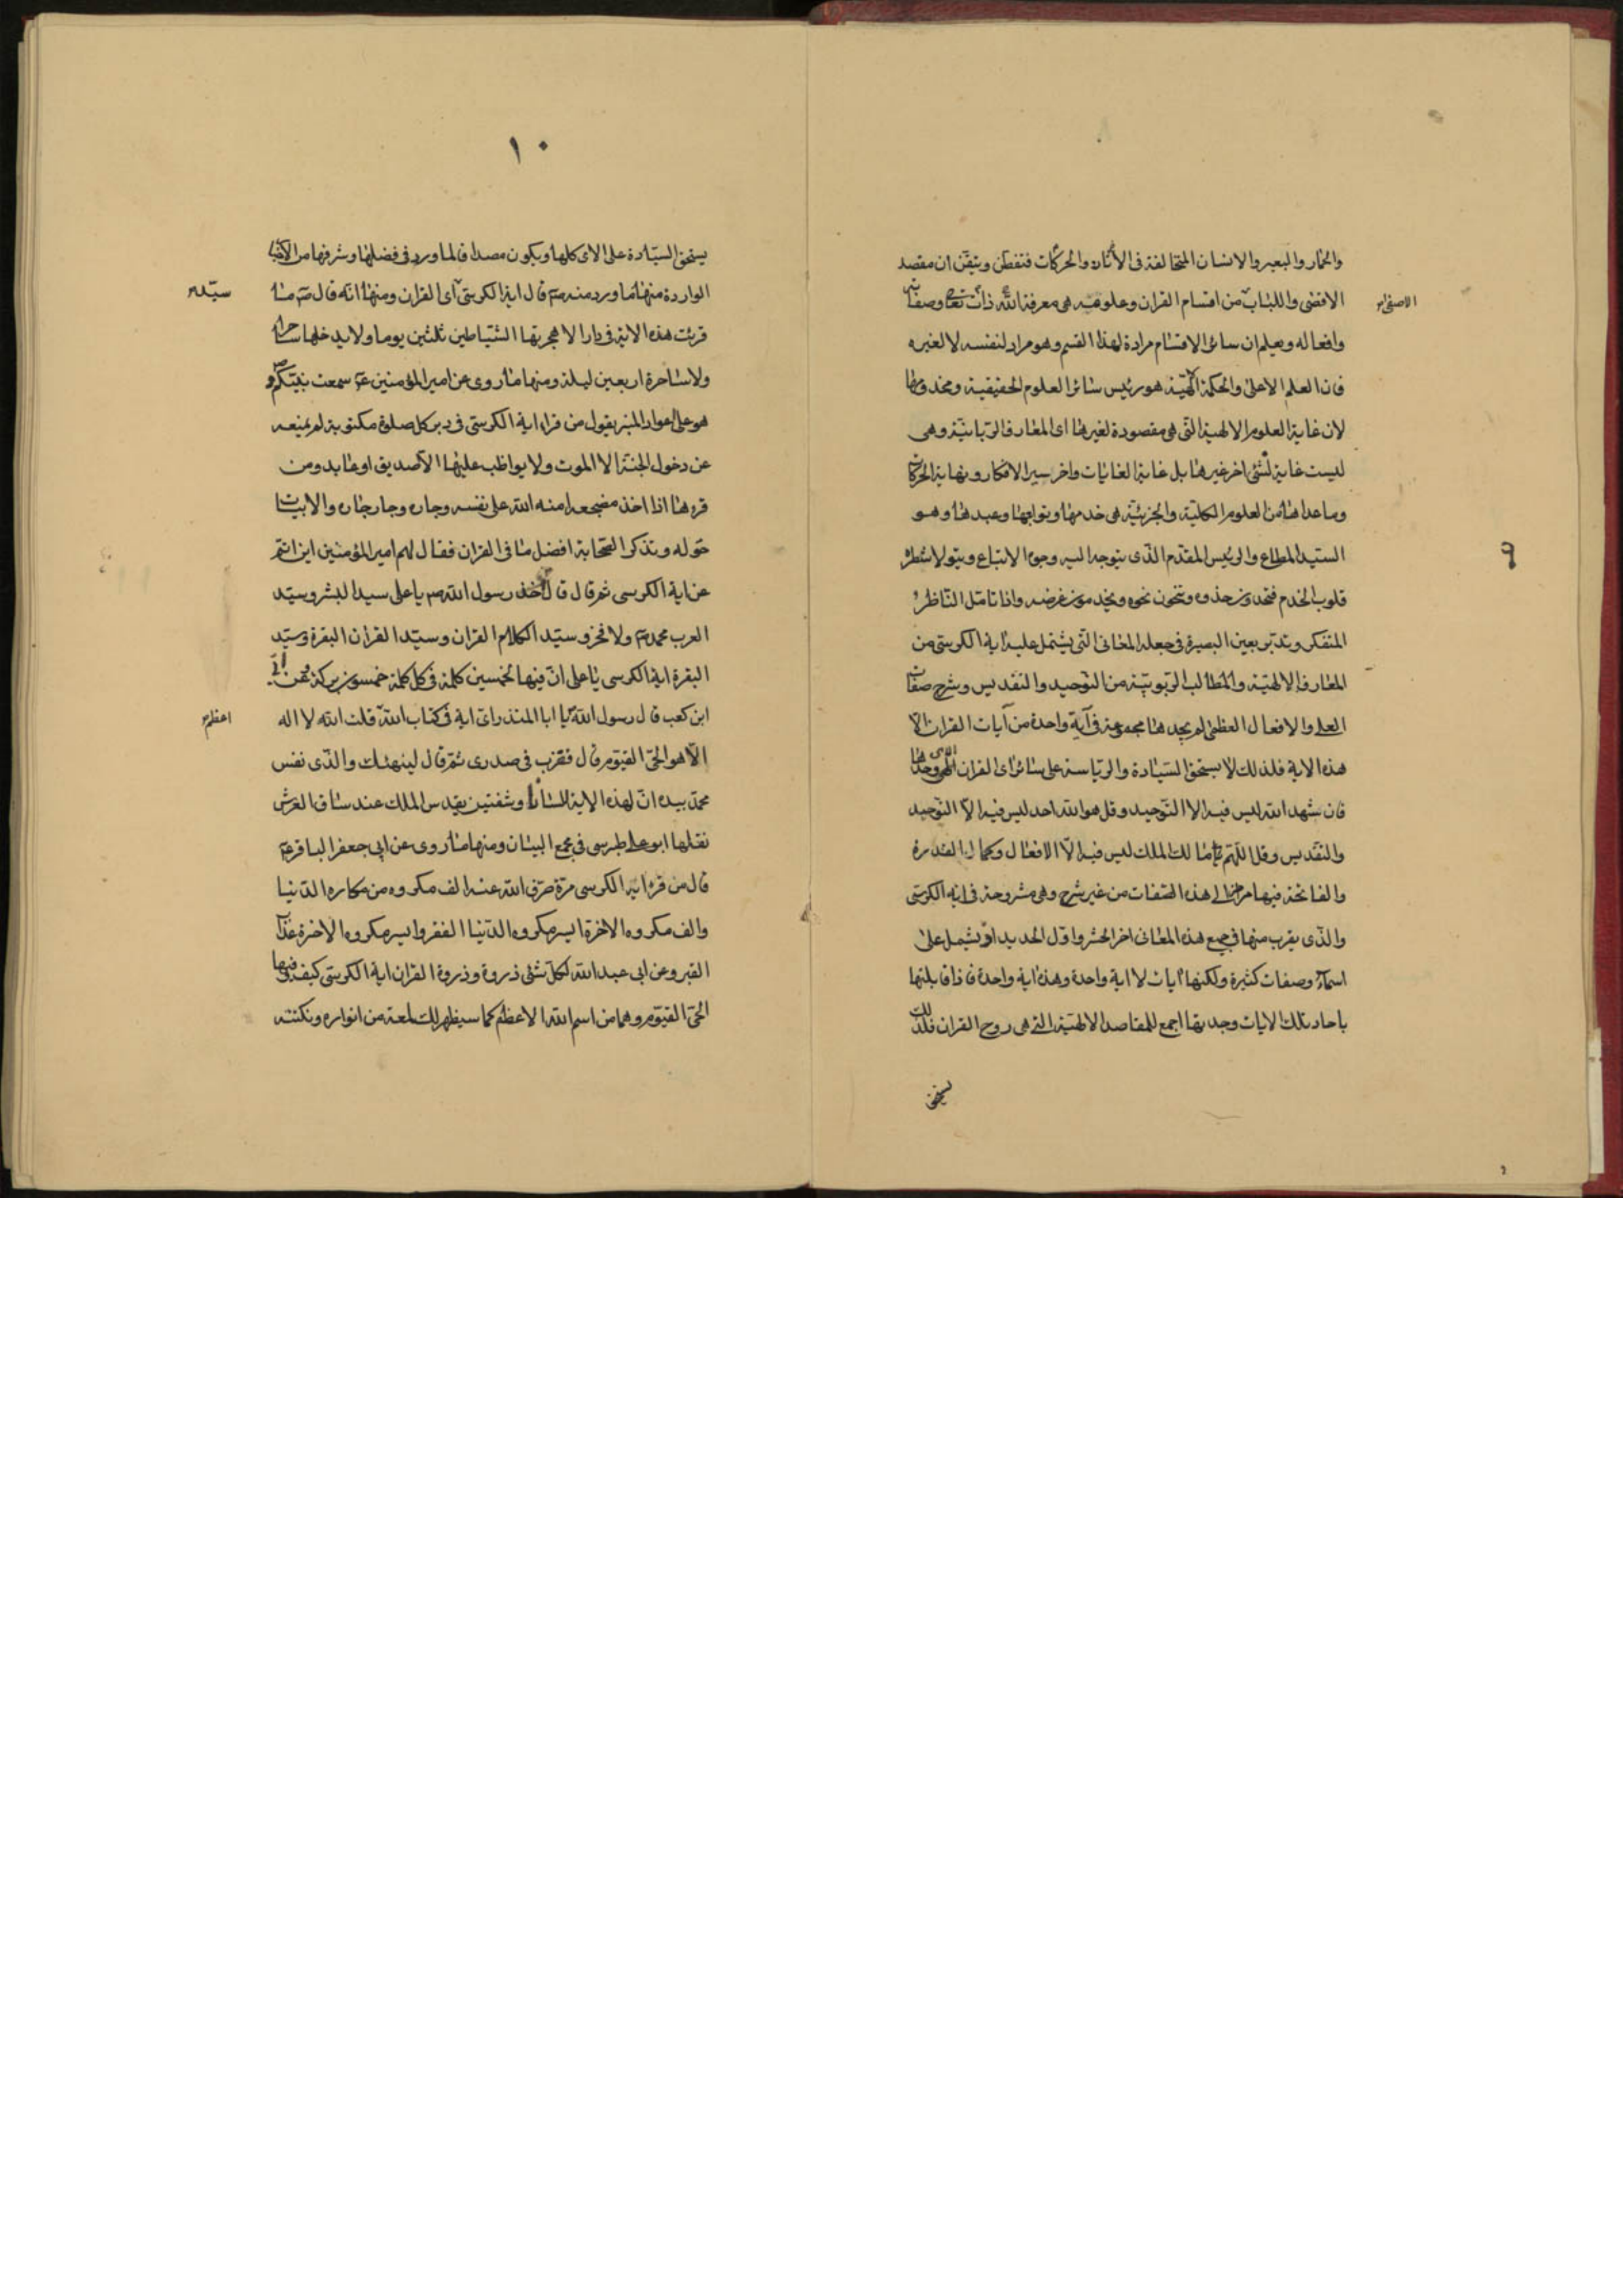 والحمار والبعير والانسان المتخالفة فى الأثار والحركات فتفطن وتيقن ان مقصد
الاقصى واللباب من اقسام القران وعلومه هى معرفة الله ذاته تعالى وصفاته
الاصفى
وافعاله ويعلم ان سائر الاقسام مرادة لهذا القسم وهو مراد لنفسه لا لغيره
فان العلم الاعلى والحكمة الالهية هو رئيس سائر العلوم الحقيقية ومخدومها
لان غاية العلوم الالهية التى هى مقصودة لغيرها اى المعارف الربانية وهى
ليست غاية لشئ اخر غيرها بل غاية الغايات واخر سير الافكار ونهاية الحركات
وما عداها من العلوم الكلية والجزئية هى خدمها وتوابعها وعبدها وهو
السيد المطاع والرئيس المقدم الذى يتوجه اليه وجوه الاتباع ويتولا شطره
٩
قلوب الخدم فتحدون حذوه وتنحون نحوه ويخدمون غرضه واذا تامل الناظر
المتفكر وتدبر بعين البصيرة فى جملة المعانى التى يشتمل عليه اية الكرسى من
المعارف الالهية والمطالب الربوبية من التوحيد والتقديس وشرح صفات
العلى والافعال العظمى لم يجدها مجموعة فى آية واحدة من آيات القران الا
هذه الاية فلذلك لا يستحق السيادة والرياسة على سائر اى القران الا هى وحدها
فان شهد الله ليس فيه الا التوحيد وقل هو الله احد ليس فيه الا التوحيد
والتقديس وقل اللهم مالك الملك ليس فيه الا الافعال وكمال القدرة
والفاتحة فيها مرامز الى هذه الصفات من غير شرح وهى مشروحة فى اية الكرسى
والذى يقرب منها فى جميع هذه المعانى اخر الحشر واول الحديد اذ يشمل على
اسماء وصفات كثيرة ولكنها ايات لا اية واحدة وهذه اية واحدة فاذا قابلتها
باحاد تلك الايات وجدتها اجمع للمقاصد الالهية التى هى روح القران فلذلك
يستحق
١٠
يستحق السيادة على الاى كلها ويكون مصداقا لما ورد فى فضلها وشرفها من الاخبار
الواردة منها ما ورد منه ص قال اية الكرسى آى القران ومنها انه قال ص ما
سيّدة
قرئت هذه الاية فى دار الا هجرتها الشياطين ثلثين يوما ولا يدخلها ساحر
ولا ساحرة اربعين ليلة ومنها ما روى عن امير المؤمنين ع سمعت نبيكم ص و
هو على اعواد المنبر يقول من قراء اية الكرسى فى دبر كل صلوة مكتوبة لم يمنعه
عن دخول الجنة الا الموت ولا يواظب عليها الا صديق او عابد ومن
قرءها اذا اخذ مضجعه امنه الله على نفسه وجاره وجار جاره والابيات
حوله وتذكر الصحابة افضل ما فى القران فقال لهم امير المؤمنين اين انتم
عن اية الكرسى ثم قال قال رسول الله ص يا على سيد البشر وسيد
العرب محمد ص ولا فخر وسيد الكلام القران وسيد القران البقرة وسيد
البقرة اية الكرسى يا على ان فيها لخمسين كلمة فى كل كلمة خمسون بركة وعن ابى
ابن كعب قال رسول الله يا ابا المنذر اى اية فى كتاب الله قلت الله لا اله
اعظم
الا هو الحى القيوم قال فضرب فى صدرى ثم قال ليهنئك والذى نفس
محمد بيده ان لهذه الاية للسانا وشفتين يقدس الملك عند ساق العرش
نقلها ابو على طبرسى فى مجمع البيان ومنها ما روى عن ابى جعفر الباقر ع
قال من قرء اية الكرسى مرة صرف الله عنه الف مكروه من مكاره الدنيا
والف مكروه الاخرة ايسر مكروه الدنيا الفقر وايسر مكروه الاخرة عذاب
القبر وعن ابى عبد الله لكل شئ ذروة وذروة القران اية الكرسى كيف وفيها
الحى القيوم وهما من اسم الله الاعظم كما سيظهر لك لمعة من انواره ونكتة